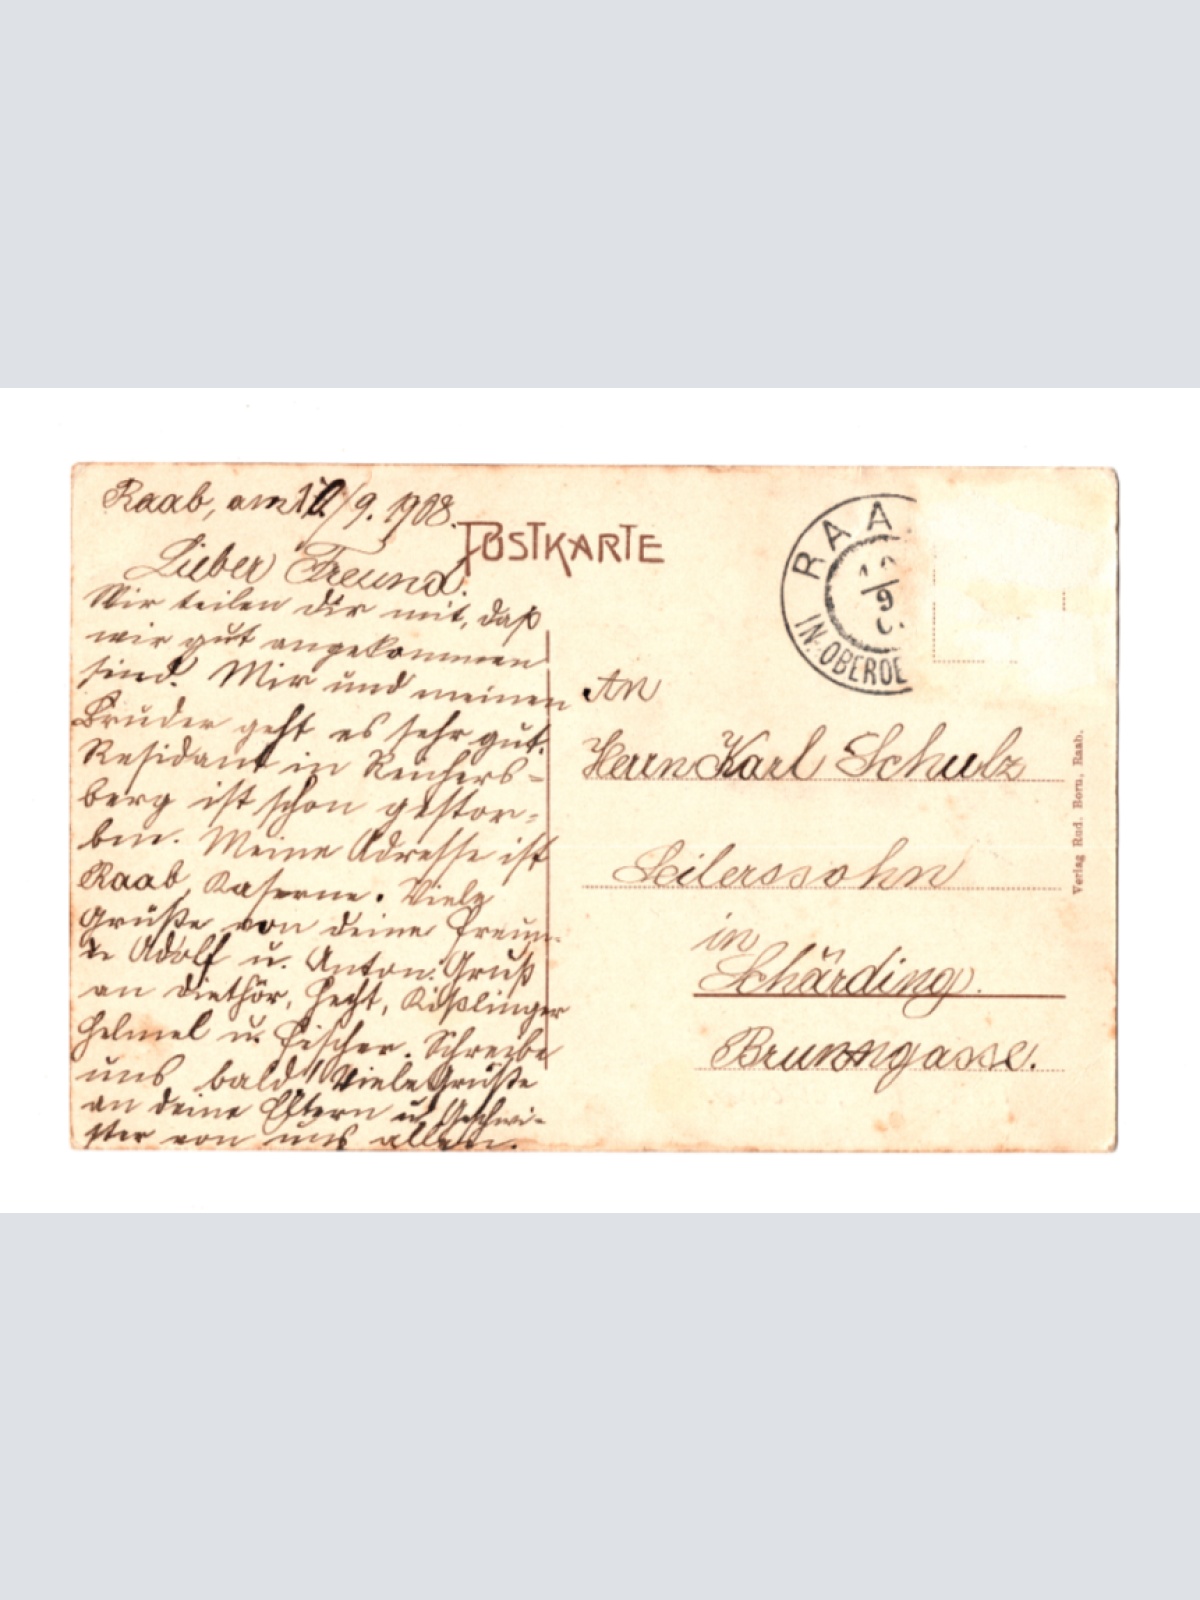 Raab, am 10./9. 1908.
POSTKARTE
Lieber Freund!
Wir teilen dir mit, daß
wir gut angekommen
sind. Mir und meinen
Bruder geht es sehr gut.
Residant in Reichers-
berg ist schon gestor-
ben. Meine Adresse ist
Raab, Kaserne. Viele
Grüße von deine Freun-
de Adolf u. Anton. Gruß
an Diethör, Hecht, Kißlinger
Helmel u. Fischer. Schreibe
uns bald! Viele Grüße
an deine Eltern u. Geschwi-
ster von uns allen.
RAA
9
IN OBEROE
An
Herrn Karl Schulz
Seilerssohn
in
Schärding.
Brunngasse.
Verlag Rud. Born, Raab.